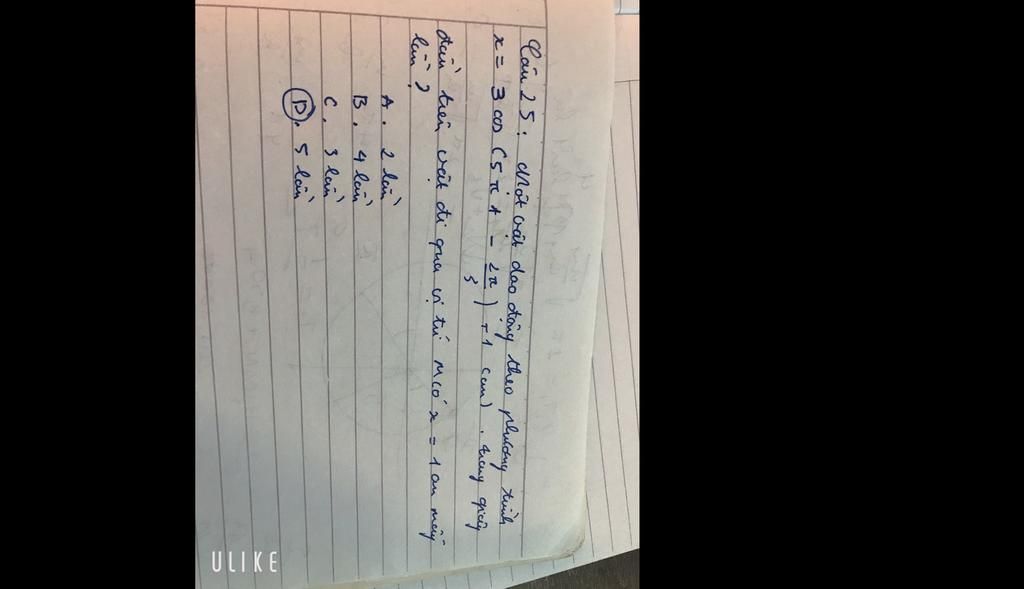 Câu 25: Một vật dao động theo phương trình
x = 3 cos (5πt - 2π/3) + 1 (cm). trong giây
đầu tiên vật đi qua vị trí M có x = 1 cm mấy
lần?
A. 2 lần
B. 4 lần
C. 3 lần
D. 5 lần
ULIKE